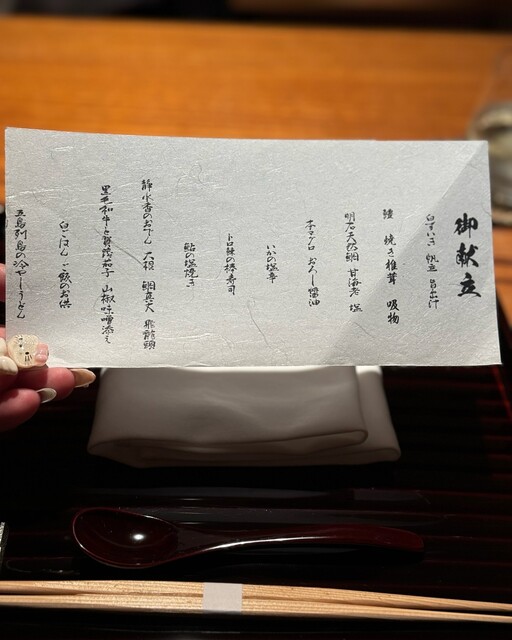 御献立
白ずいき 帆立 旨出汁
鱧 焼き椎茸 吸物
明石天然鯛 甘海老 塩
本マグロ おろし醤油
いかの塩辛
トロ鯖の棒寿司
鮎の塩焼き
静水香のおでん 大根 鯛真丈 飛龍頭
黒毛和牛と賀茂茄子 山椒味噌添え
白ごはん ご飯のお供
五島列島の冷やしうどん